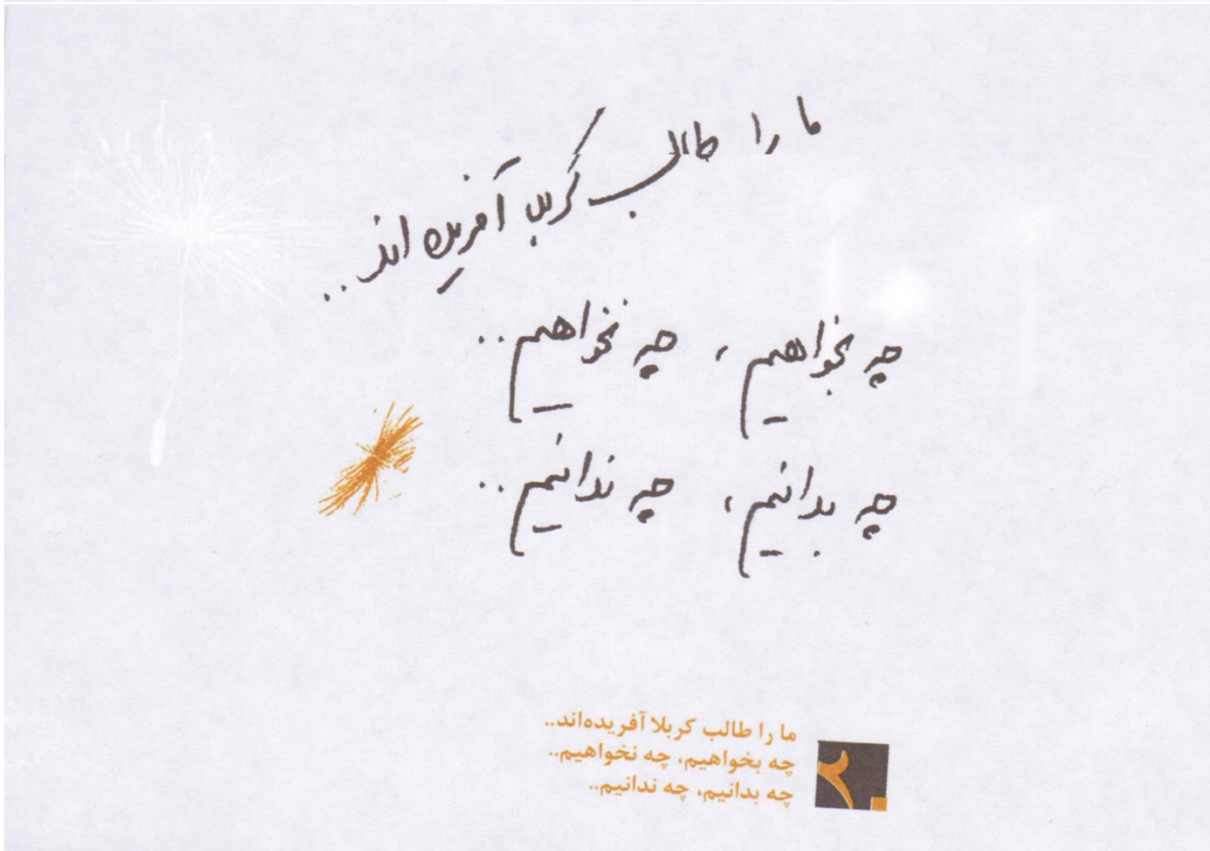 ما را طالب کربلا آفریده اند..
چه بخواهیم، چه نخواهیم..
چه بدانیم، چه ندانیم..
ما را طالب کربلا آفریده‌اند..
چه بخواهیم، چه نخواهیم..
چه بدانیم، چه ندانیم..
۲۰